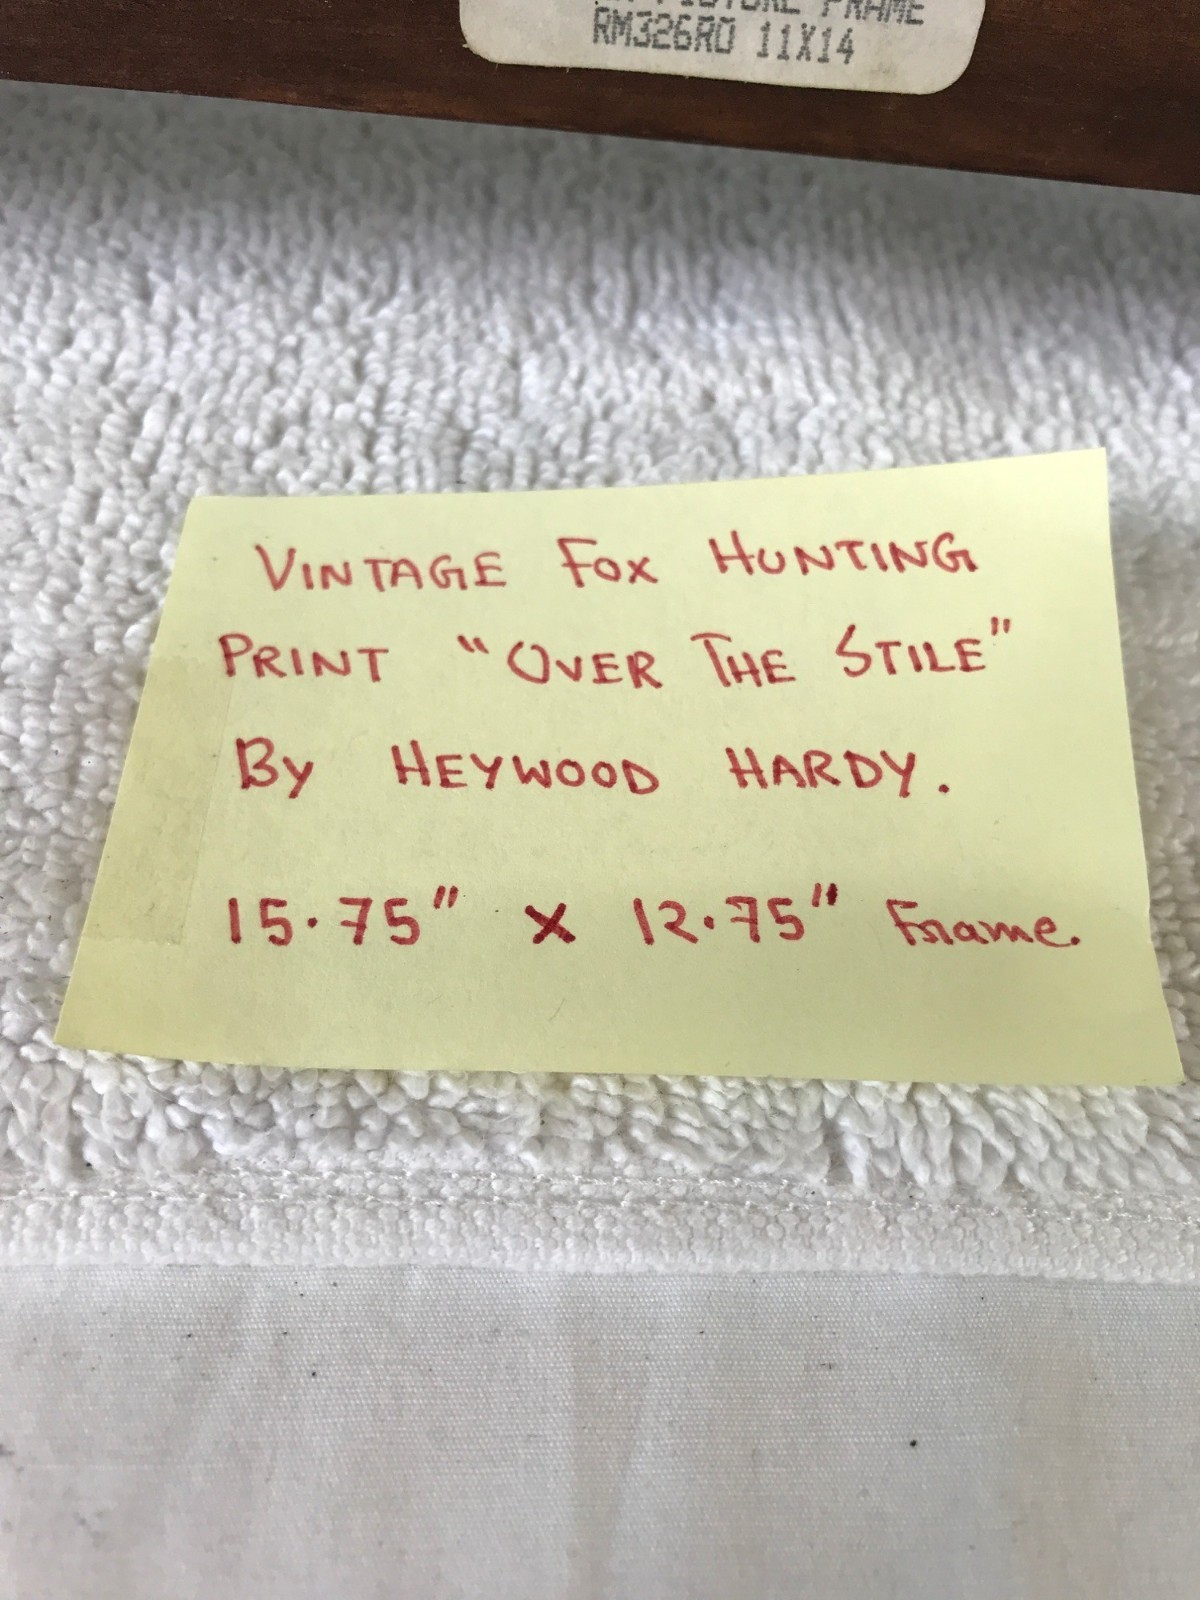 PICTURE FRAME
RM326RO 11X14
VINTAGE FOX HUNTING
PRINT "OVER THE STILE"
By HEYWOOD HARDY.
15.75" X 12.75" Frame.